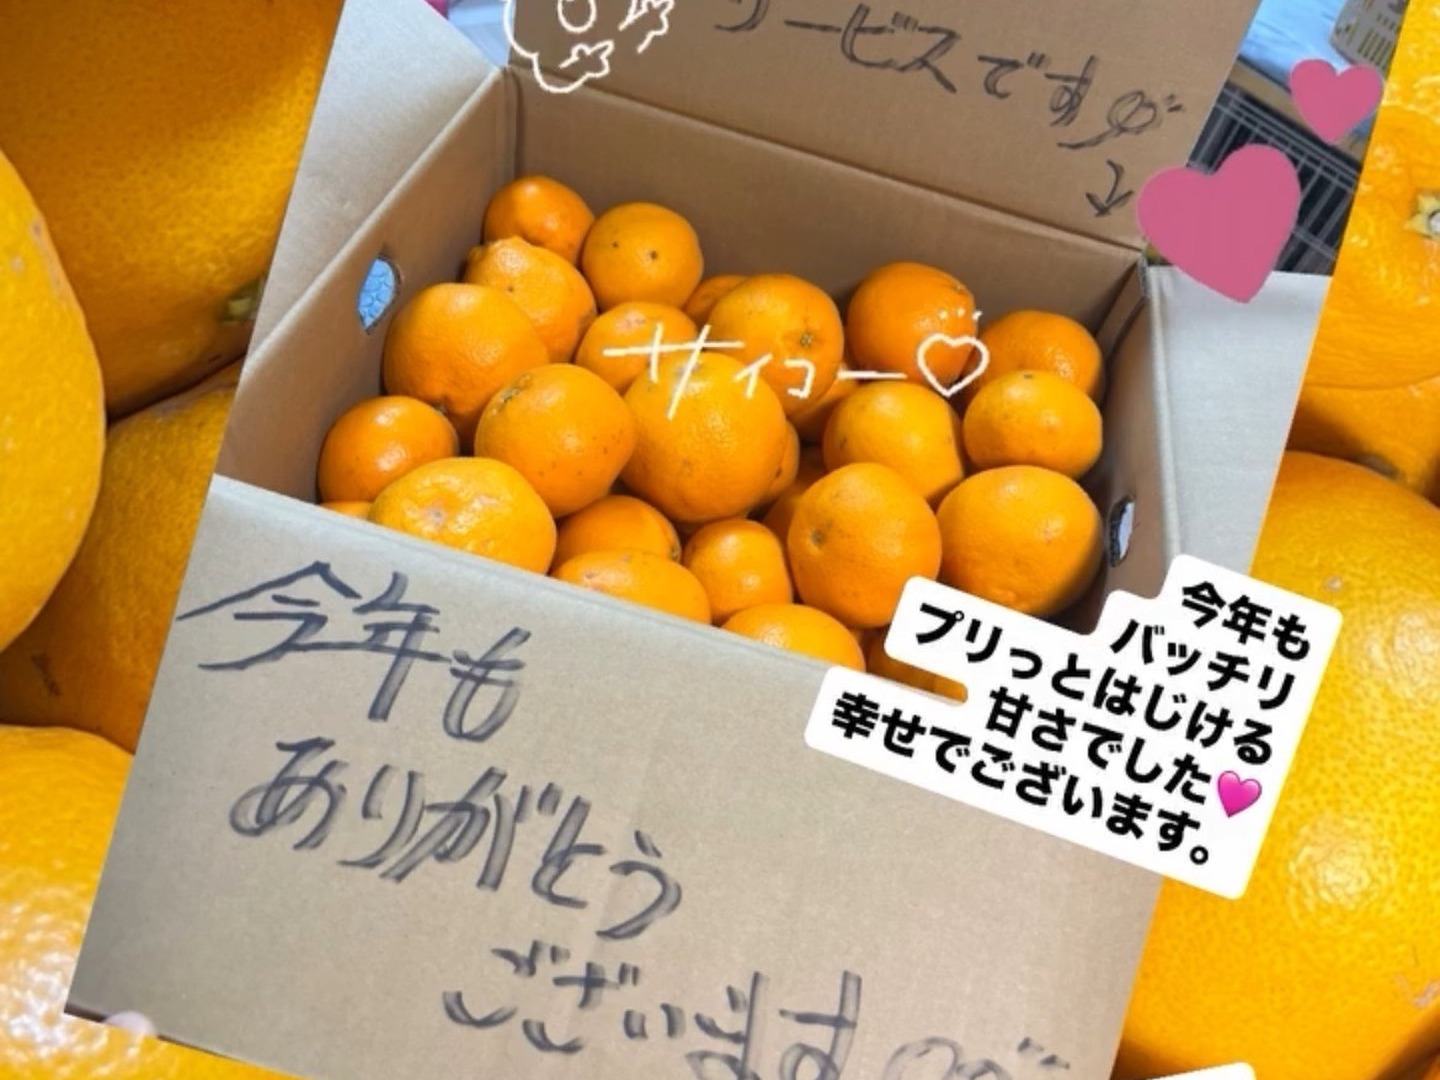 サービスです
サイコー♡
今年も
バッチリ
プリっとはじける
甘さでした💗
幸せでございます。
今年も
ありがとう
ございます